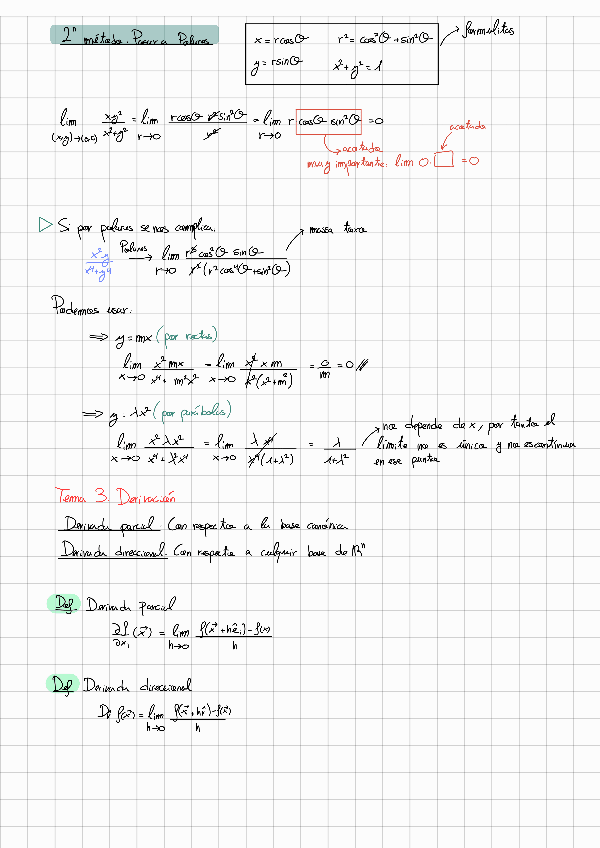 2º método. Pasar a Polares
x = r cosθ r² = cos²θ + sin²θ → formulitas
y = r sinθ x² + y² = 1
lim (x,y)→(0,0) xy²/x²+y² = lim r→0 r cosθ r² sin²θ / r² = lim r→0 r cosθ sin²θ = 0
acotada
→ acotada
muy importante: lim 0·□ = 0
▷ Si por polares se nos complica.
→ massa tarea
x²y/x⁴+y⁴ Polares → lim r→0 r³ cos²θ sinθ / r² (r² cos⁴θ + sin²θ)
Podemos usar:
⇒ y = mx (por rectas)
lim x→0 x² mx / x⁴ + m²x² = lim x→0 x² x m / x² (x² + m²) = 0/m = 0 //
⇒ y = λx² (por parábolas)
lim x→0 x² λx² / x⁴ + λ²x⁴ = lim x→0 λ x⁴ / x⁴ (1+λ²) = λ / 1+λ²
→ no depende de x, por tanto el
límite no es único y no es continua
en ese punto
Tema 3. Derivación
Derivada parcial. Con respecto a la base canónica
Derivada direccional. Con respecto a cualquier base de ℝⁿ
Def. Derivada parcial
∂f/∂x₁ (x⃗) = lim h→0 f(x⃗ + hê₁) - f(x) / h
Def. Derivada direccional
Dv̂ f(x⃗) = lim h→0 f(x⃗ + hv̂) - f(x⃗) / h